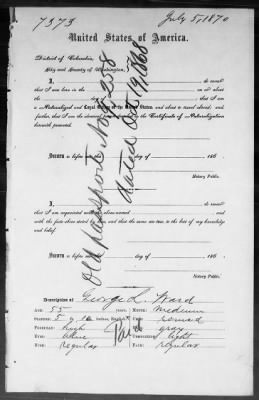 7373
July 5, 1870
United States of America.
District of Columbia,
City and County of Washington,
I, do swear
that I was born in the on or about
the day of that I am
a Naturalized and Loyal Citizen of the United States, and about to travel abroad; and
further, that I am the described in the Certificate of Naturalization
herewith presented.
Sworn to before me, this day of 186
Notary Public.
Old passport No. 9258
dated Oct 19/1868
I, do swear
that I am acquainted with the above-named and
with the facts above stated by him, and that the same are true to the best of my knowledge
and belief.
Sworn to before me, this day of 186
Notary Public.
Description of George L. Ward
Age: 55 Mouth: Medium
Stature: 5 Inches, English Chin: round
Forehead: high Hair: gray
Eyes: blue Complexion: light
Nose: regular Face: regular